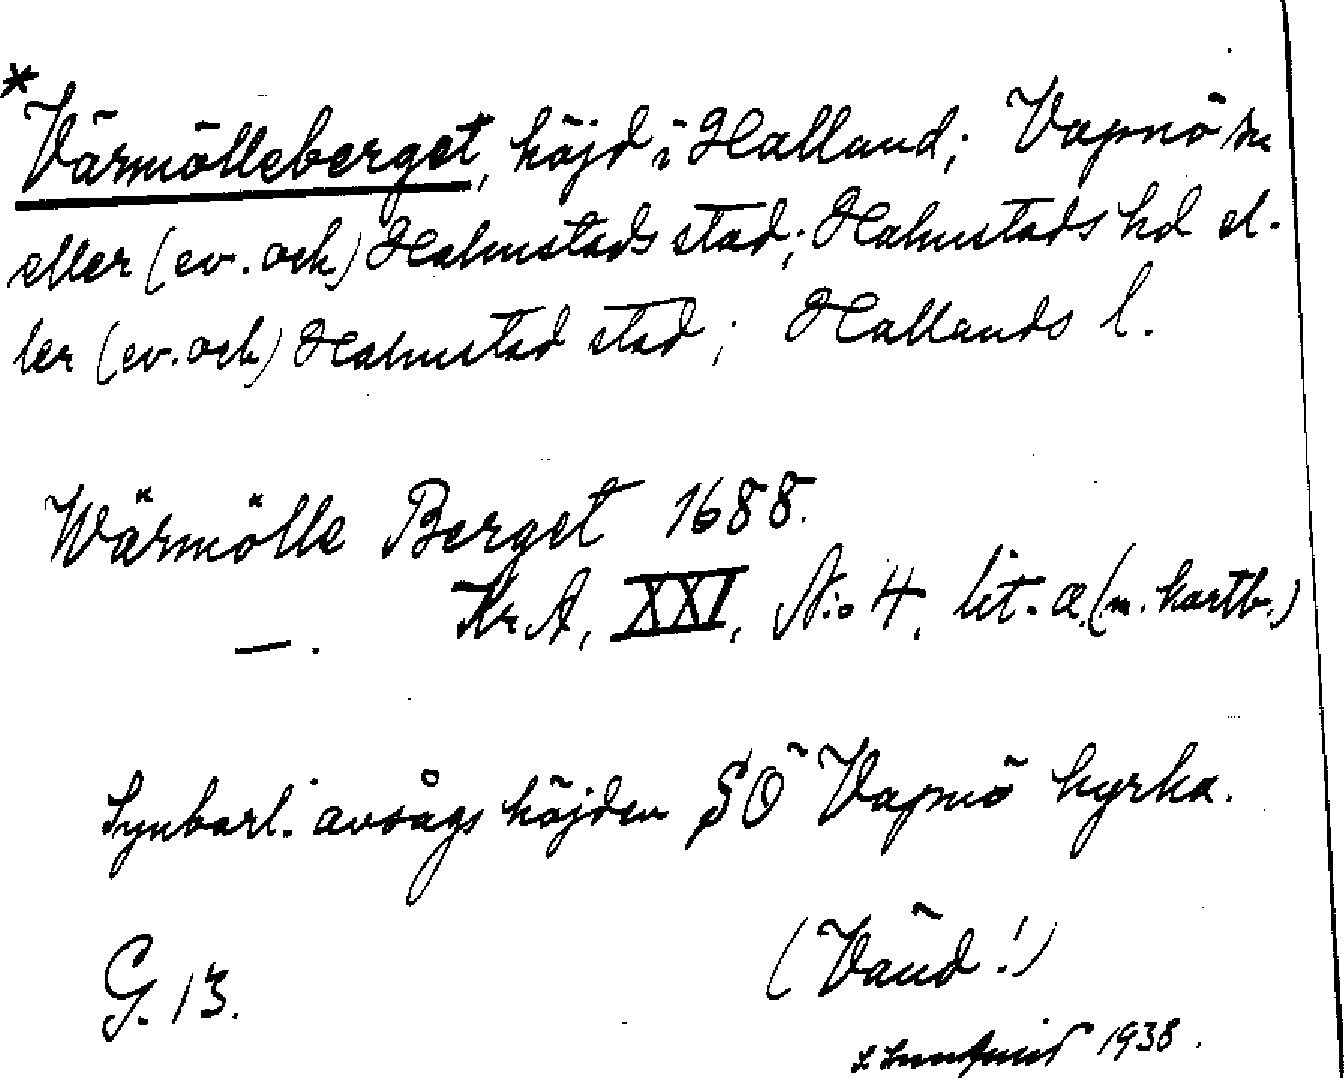 *Värmölleberget, höjd i Halland; Vapnö sn
eller (ev. och) Halmstads stad; Halmstads hd el-
ler (ev. och) Halmstad stad; Hallands l.
Wärmölle Berget 1688.
— . Kr A, XXI, N:o 4, lit. a (n. kartb.)
Synbarl. avsågs höjden SÖ Vapnö kyrka.
(Vänd!)
G. 13.
1938.